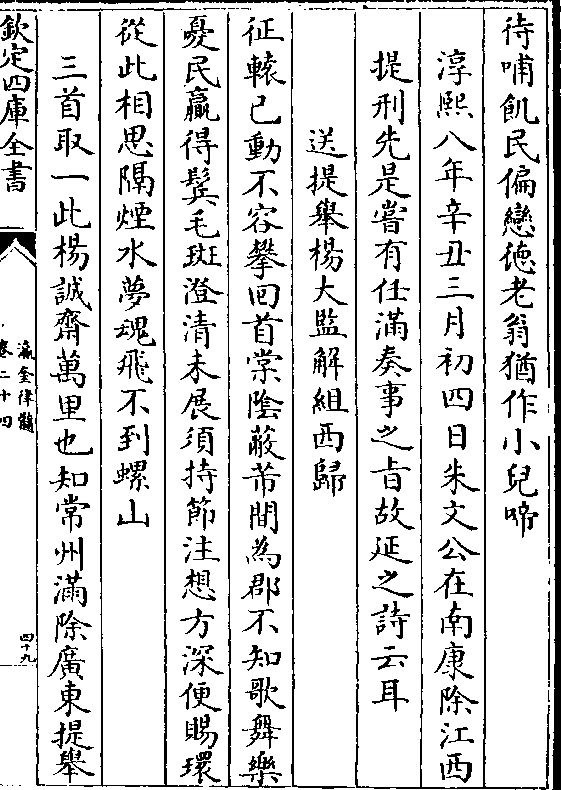 待哺飢民偏戀德老翁猶作小兒啼
淳熙八年辛丑三月初四日朱文公在南康除江西
提刑先是嘗有任滿奏事之㫖故延之詩云耳
送提舉楊大監解組西歸
征轅已動不容攀回首棠陰蔽芾間為郡不知歌舞樂
憂民贏得鬂毛斑澄清未展須持節注想方深便賜環
從此相思隔煙水夢魂飛不到螺山
三首取一此楊誠齋萬里也知常州滿除廣東提舉
欽定四庫全書
瀛奎律髓
卷二十四
四十九